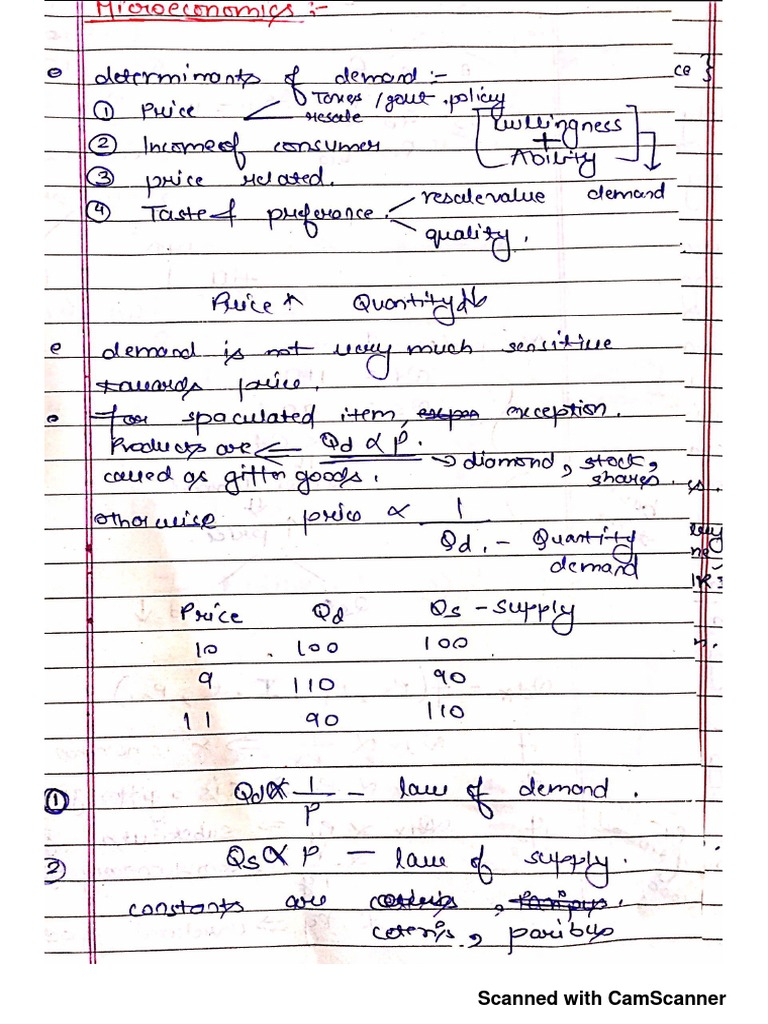 Microeconomics :-
determinants of demand :-
① Price Taxes / govt. policy
resale
Willingness
+
Ability
② Income of consumer
③ price related.
④ Taste & preference. resale value demand
quality.
Price ↑ Quantity d ↓
demand is not very much sensitive
towards price.
For spaculated item, exception.
Products are ← Qd ∝ P.
called as giffin goods. → diamond, stock,
shares.
otherwise price ∝ 1
Qd. - Quantity
demand
Price Qd Qs - supply
10 100 100
9 110 90
11 90 110
① Qd ∝ 1/P - law of demand.
2) Qs ∝ P - law of supply.
constants are
ceteris, paribus
Scanned with CamScanner